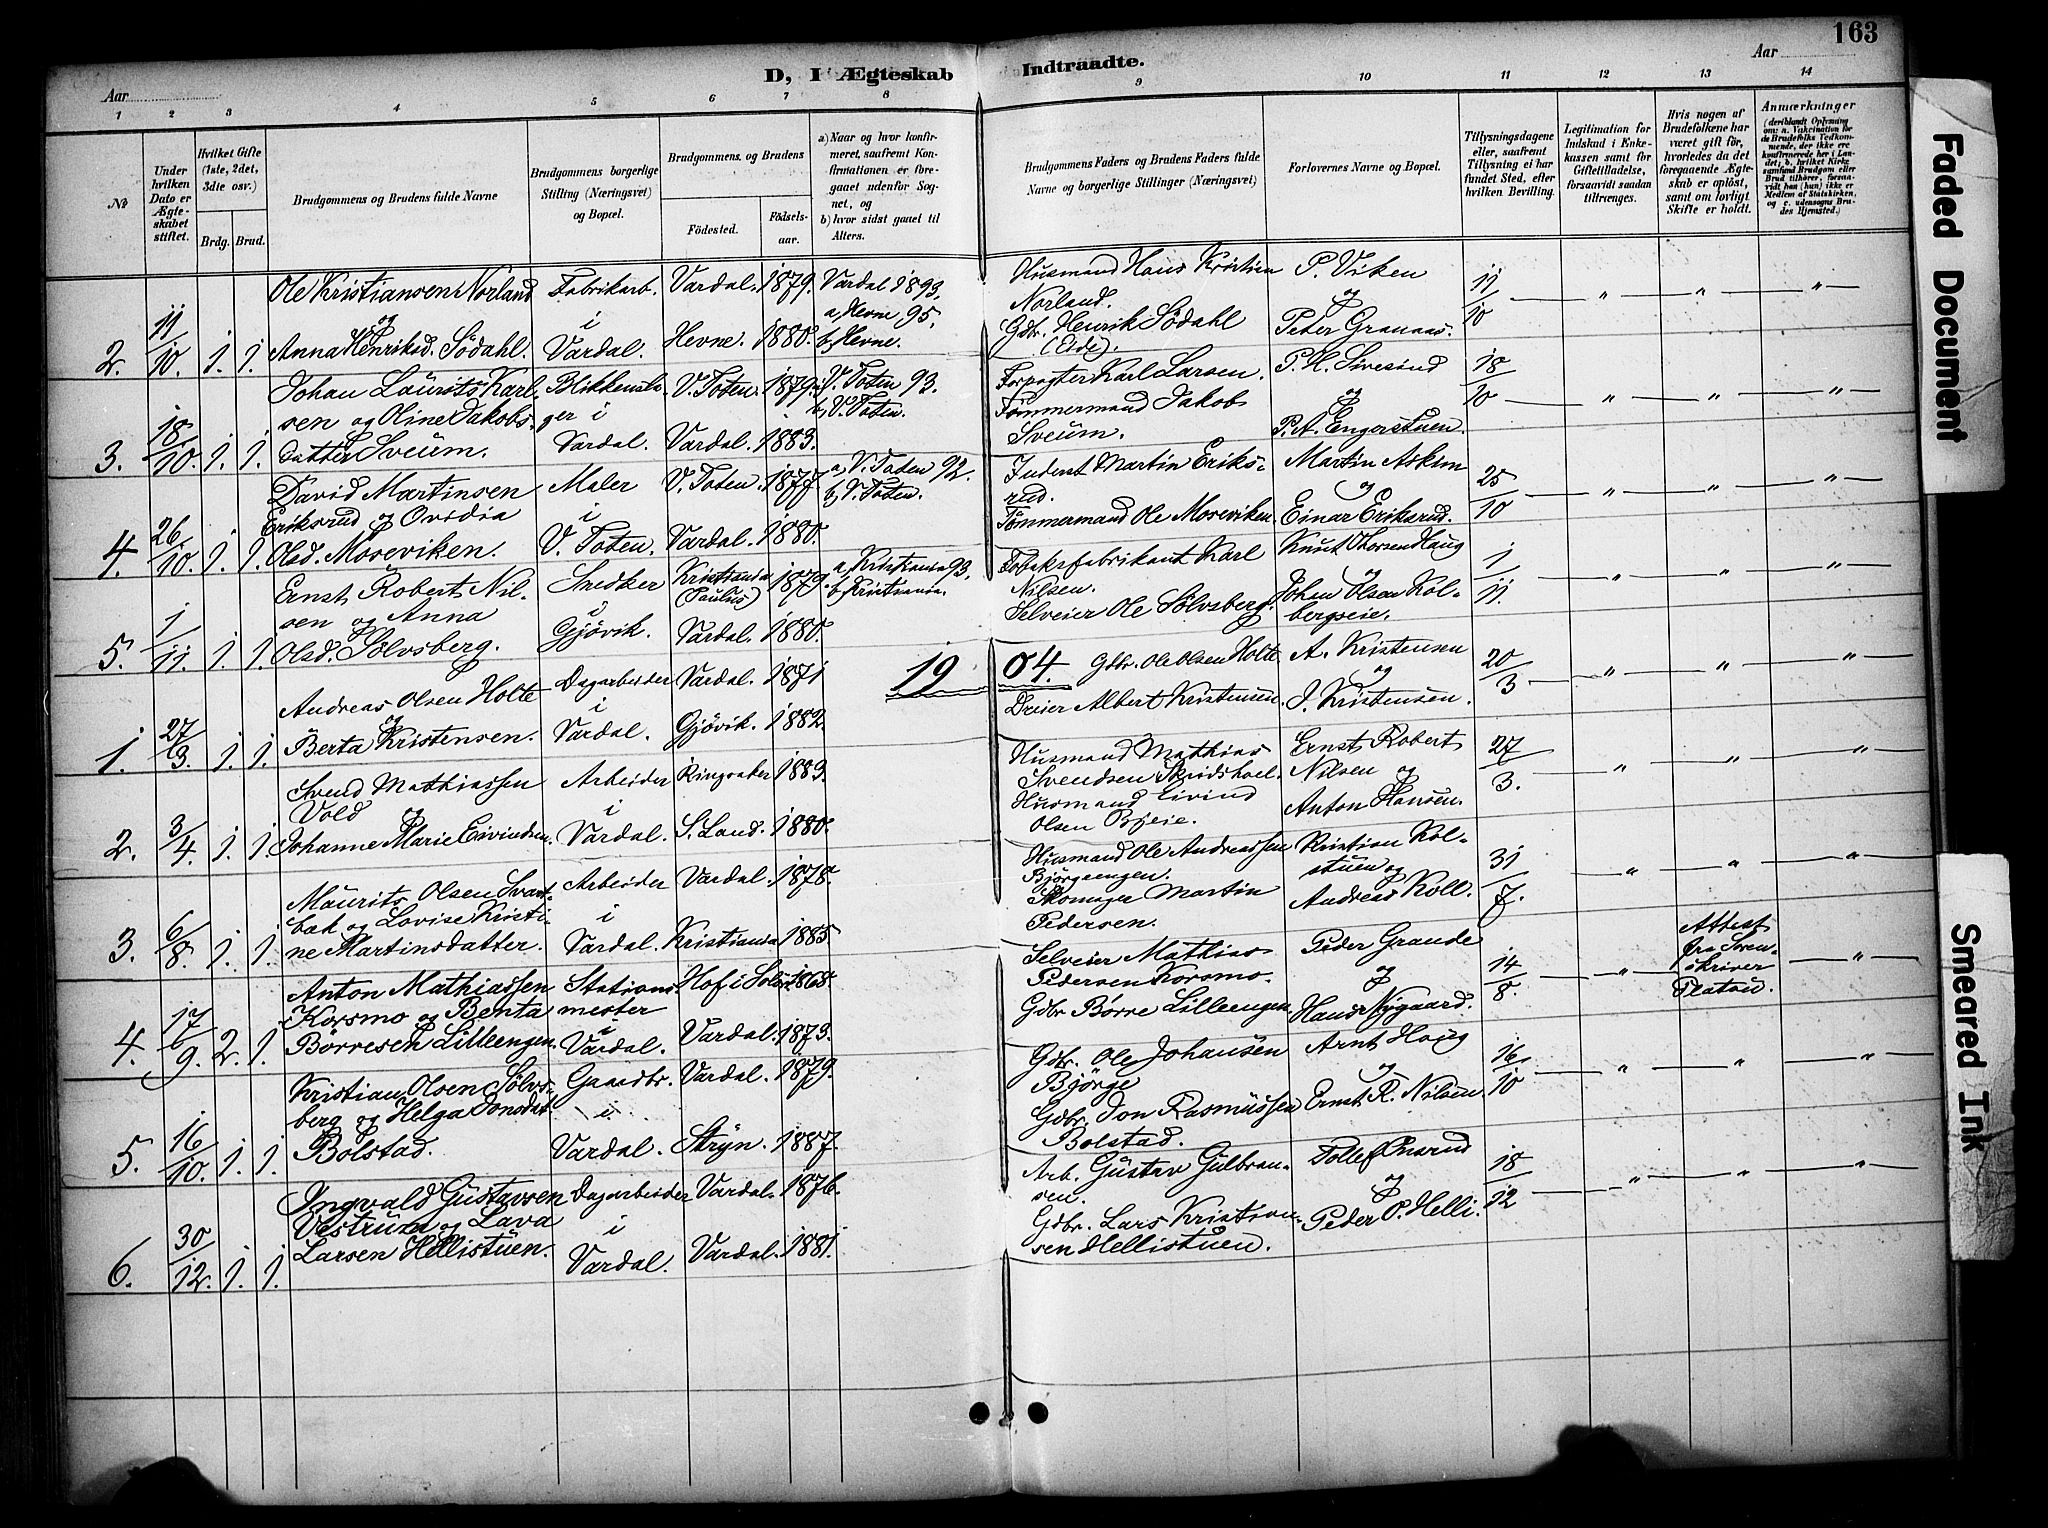 163
D, I Ægteskab Indtraadte.
Aar
Aar
1 2 3 4 5 6 7 8 9 10 11 12 13 14
No
Under hvilken Dato er Ægteskabet stiftet.
Hvilket Gifte (1ste, 2det, 3die osv.)
Brdg. Brud.
Brudgommens og Brudens fulde Navne
Brudgommens borgerlige Stilling (Næringsvei) og Bopæl.
Brudgommens og Brudens
Födested.
Födselsaar.
a) Naar og hvor konfirmeret, saafremt Konfirmationen er foregaaet udenfor Sognet, og
b) hvor sidst gaaet til Alters.
Brudgommens Faders og Brudens Faders fulde Navne og borgerlige Stillinger (Næringsvei)
Forlovernes Navne og Bopæl.
Tillysningsdagene eller, saafremt Tillysning ei har fundet Sted, efter hvilken Bevilling.
Legitimation for Indskud i Enkekassen samt for Giftetilladelse, forsaavidt saadan tiltrænges.
Hvis nogen af Brudefolkene har været gift før, hvorledes da det foregaaende Ægteskab er oplöst, samt om lovligt Skifte er holdt.
Anmærkninger
2. 11/10. 1. 1. Ole Kristiansen Norland og Anna Henriksd. Södahl. Fabrikarb. i Vardal. Vardal. 1879. Hevne. 1880. Vardal 1893. a, Hevne 95. b, Hevne. Husmand Hans Kristian Norland. Gdbr. Henrik Södahl (Eide). P. Viken og Peter Granaas. 11/10 — " — " — " —
3. 18/10. 1. 1. Johan Laurits Karlsen og Oline Jakobsdatter Sveum. Blikkenslager i Vardal. V. Toten. 1879. Vardal. 1883. a, V. Toten 93. b, V. Toten. Forpagter Karl Larsen. Tömmermand Jakob Sveum. P. H. Sivesind og P. A. Engerstuen. 18/10 — " — " — " —
4. 26/10. 1. 1. David Martinsen Eriksrud og Ovidia Olsd. Moseviken. Maler i V. Toten. V. Toten. 1877. Vardal. 1880. a, V. Toten 92. b, V. Toten. Martin Eriksrud. Tömmermand Ole Moseviken. Martin Askim og Einar Eriksrud. 25/10 — " — " — " —
5. 1/11. 1. 1. Ernst Robert Nilsen og Anna Olsd. Sölvsberg. Snedker i Gjövik. Kristiania (Paulus) 1879. Vardal. 1880. a, Kristiania 93. b, Kristiania. Tobaksfabrikant Karl Nilsen. Selveier Ole Sölvsberg. Knut Thorsen Haug og Johan Olsen Kolbergseie. 1/11. — " — " — " —
1904.
1. 27/3. 1. 1. Andreas Olsen Holte og Berta Kristensen. Dagarbeider i Vardal. Vardal. 1871 Gjövik. 1882. Gdbr. Ole Olsen Holte. Dreier Albert Kristensen. A. Kristensen og J. Kristensen. 20/3 — " — " — " —
2. 3/4. 1. 1. Svend Mathiassen Vold og Johanne Marie Eivindsen. Arbeider i Vardal. Ringsaker 1883. S. Land. 1880. Husmand Mathias Svendsen Husmand Eivind Olsen Ernst Robert Nilsen og Anton Hansen. 27/3. — " — " — " —
3. 6/8. 1. 1. Maurits Olsen Svartbak og Lovise Kristine Martinsdatter. Arbeider i Vardal. Vardal. 1878. Kristiania 1885. Husmand Ole Andreassen Björgeengen. Skomager Martin Pedersen. Kristian Kolstuen og Andreas Koll. 31/7. — " — " — " —
4. 17/9. 2. 1. Anton Mathiassen Korsmo og Benta Börresen Lilleengen. Stationsmester i Vardal. Hof i Solör. 1868. Vardal. 1873. Selveier Mathias Pedersen Korsmo. Gdbr Börre Lilleengen. Peder Grande og Hans Nygaard. 14/8. — " — Attest fra Sorenskriver Platou. — " —
5. 16/10. 1. 1. Kristian Olsen Sölvsberg og Helga Jonsdat. Bolstad. Gaardbr. i Vardal. Vardal. 1879. Stryn. 1887. Gdbr. Ole Johansen Björge Gdbr. Jon Rasmussen Bolstad. Arnt Haug og Ernst R. Nilsen. 16/10 — " — " — " —
6. 30/12. 1. 1. Ingvald Gustavsen Vestrum og Lava Larsen Hellistuen. Dagarbeider i Vardal. Vardal. 1876. Vardal. 1881. Arb. Gustav Gulbransen. Gdbr. Lars Kristiansen Hellistuen. Tollef og Peder P. Helli. 18/12 — " — " — " —
Faded Document
Smeared Ink